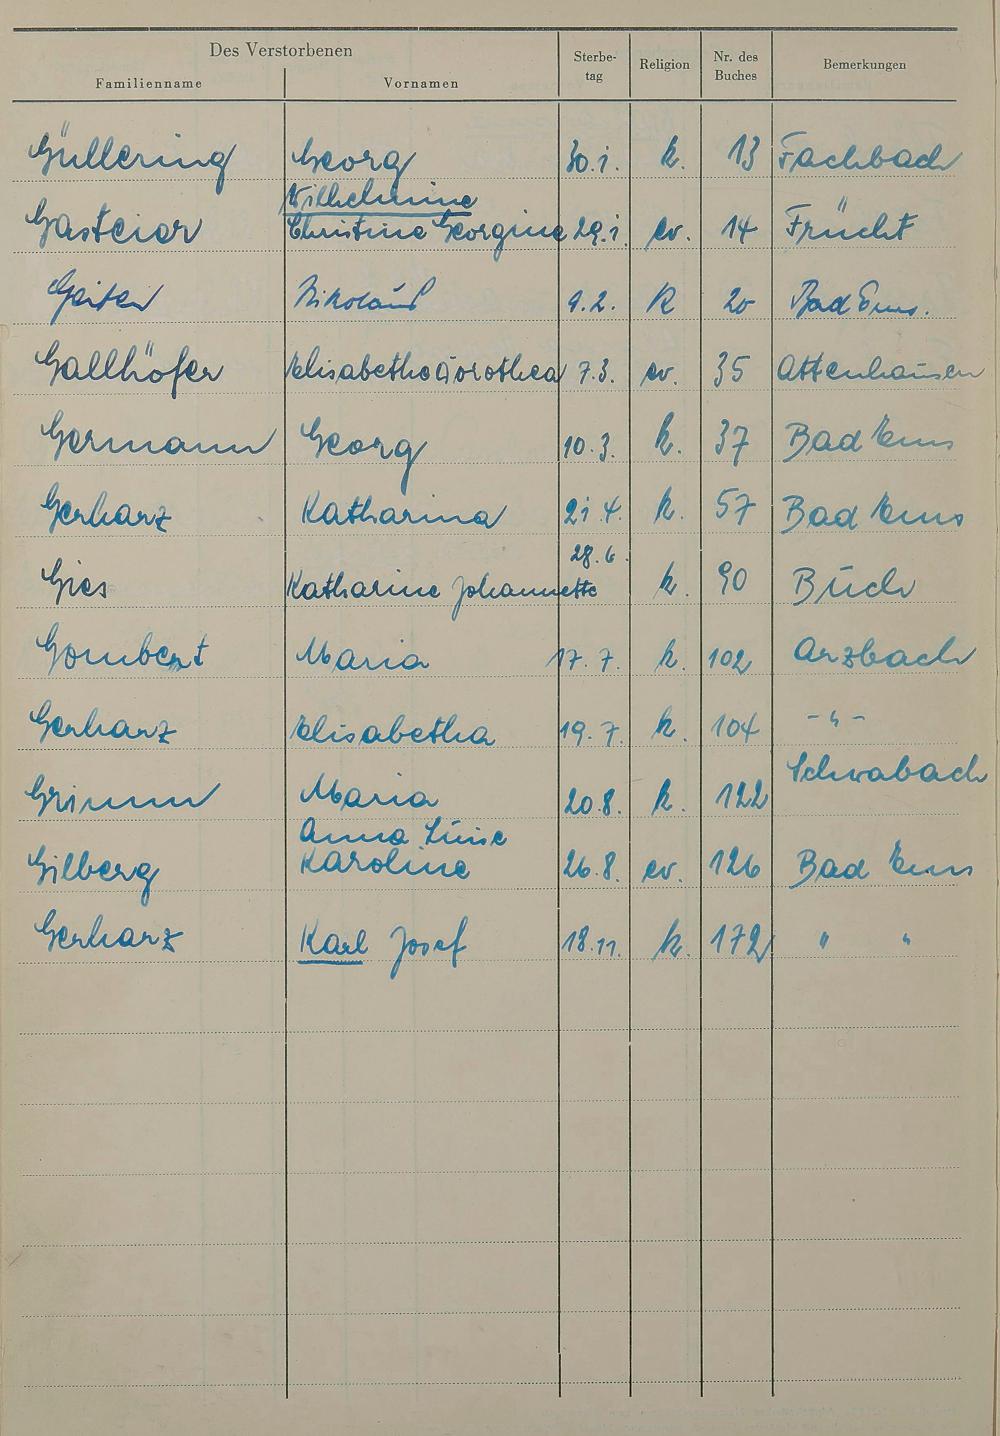 Des Verstorbenen
Familienname Vornamen Sterbe-tag Religion Nr. des Buches Bemerkungen
Güllering Georg 30.1. k. 13 Fachbach
Wilhelmine
Gasteier Christine Georgine 29.1. ev. 14 Frücht
Nikolaus 9.2. K 20 Bad Ems.
Gallhöfer Elisabethe Dorothea 7.3. ev. 35 Attenhausen
Germann Georg 10.3. k. 37 Bad Ems
Gerharz Katharina 21.4. k. 57 Bad Ems
28.6.
Gies Katharine Johannette k. 90 Buch
Gombert Maria 17.7. k. 102 Arzbach
Gerharz Elisabetha 19.7. k. 104 -"-
Schwabach
Grimm Maria 20.8. k. 122
Anna Luise
Gilberg Karoline 26.8. ev. 126 Bad Ems
Gerharz Karl Josef 18.11. k. 172 " "